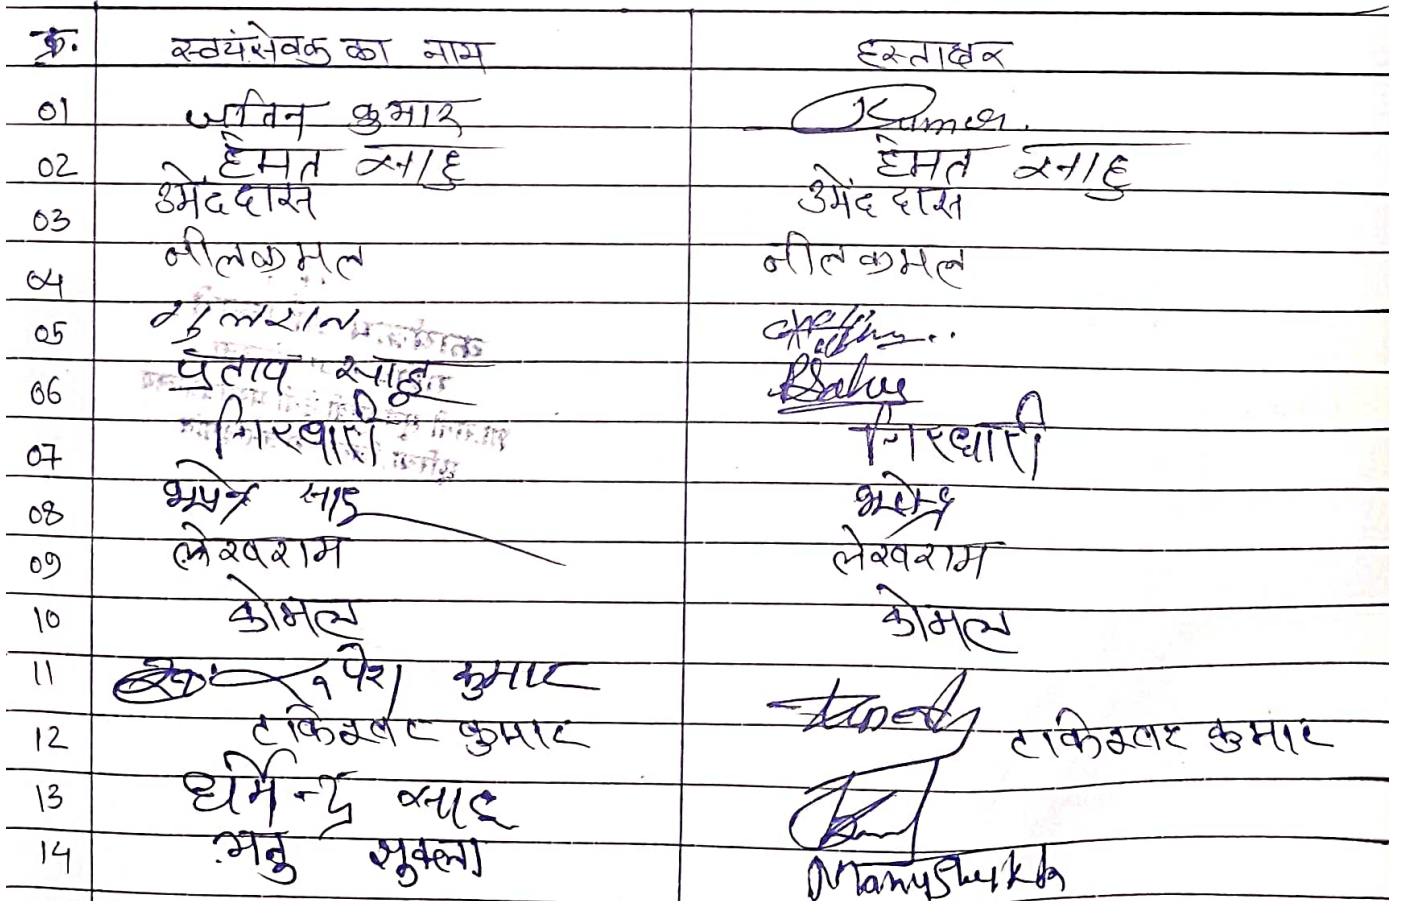 क्र. स्वयंसेवक का नाम हस्ताक्षर
01 जतिन कुमार Kumar.
02 हेमत साहु हेमत साहु
03 उमेंददास उमेंद दास
04 नीलकमल नीलकमल
05
06 प्रताप साहू PSahu
07 गिरधारी गिरधारी
08 भुपेन्द्र साहु भुपेन्द्र
09 लेखराम लेखराम
10 कोमल कोमल
11 कुमार
12 टाकेश्वर कुमार टाकेश्वर कुमार
13 धर्मेन्द्र साहु
14 मनु सुक्ला Manu Shukla